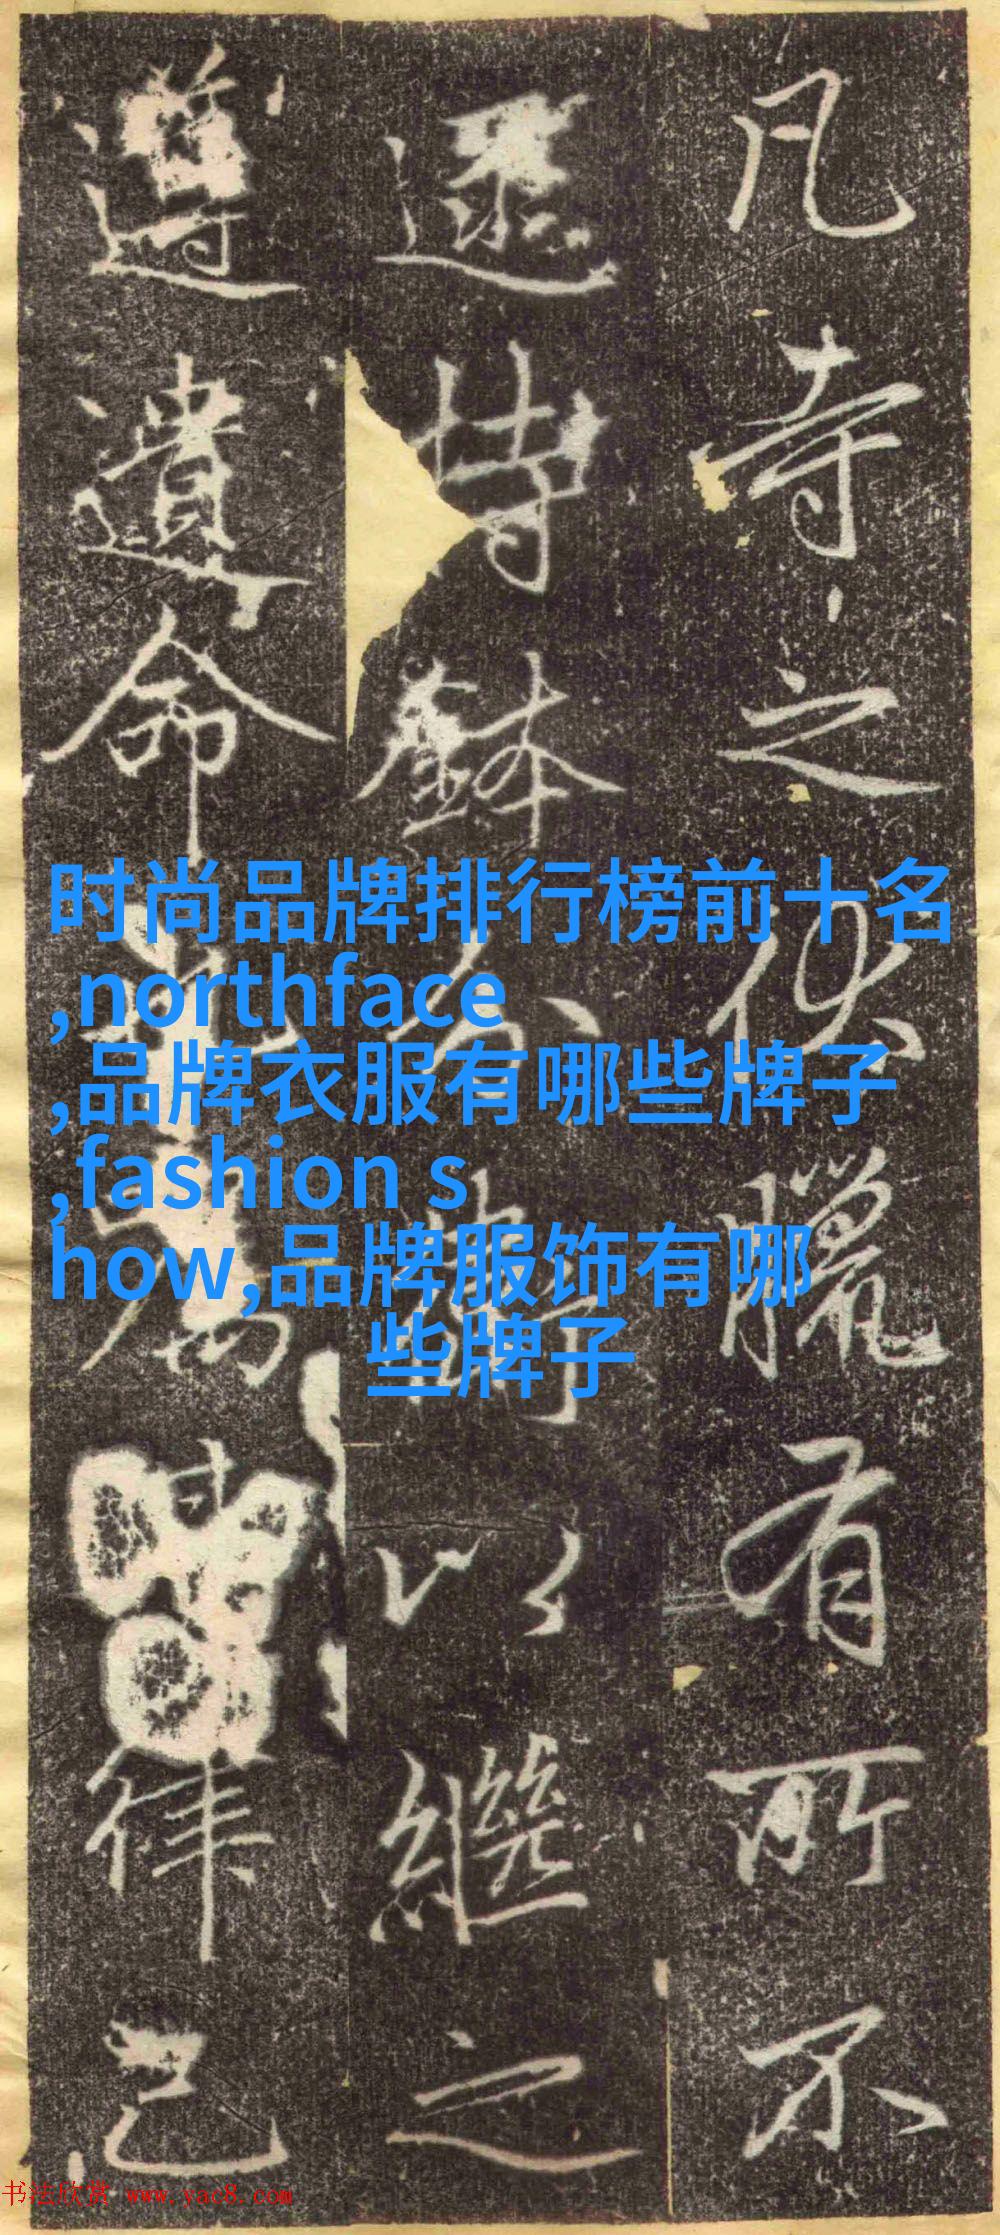 凡寺之伏臘有所不
持鉢分衛以繼之
遵遺命為律己
时尚品牌排行榜前十名
,northface
,品牌衣服有哪些牌子
,fashion s
how,品牌服饰有哪
些牌子
书法欣赏 www.yac8.com